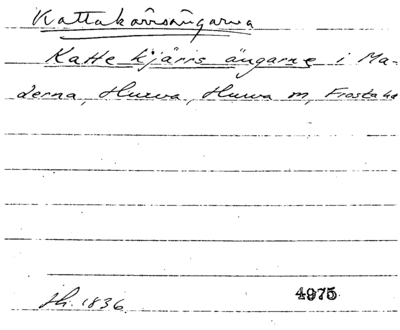 Kattakärrsängarna
Katte kjärrs ängarne i Ma-
derna, Hurva, Hurva m, Frosta hd
sk. 1836
4975